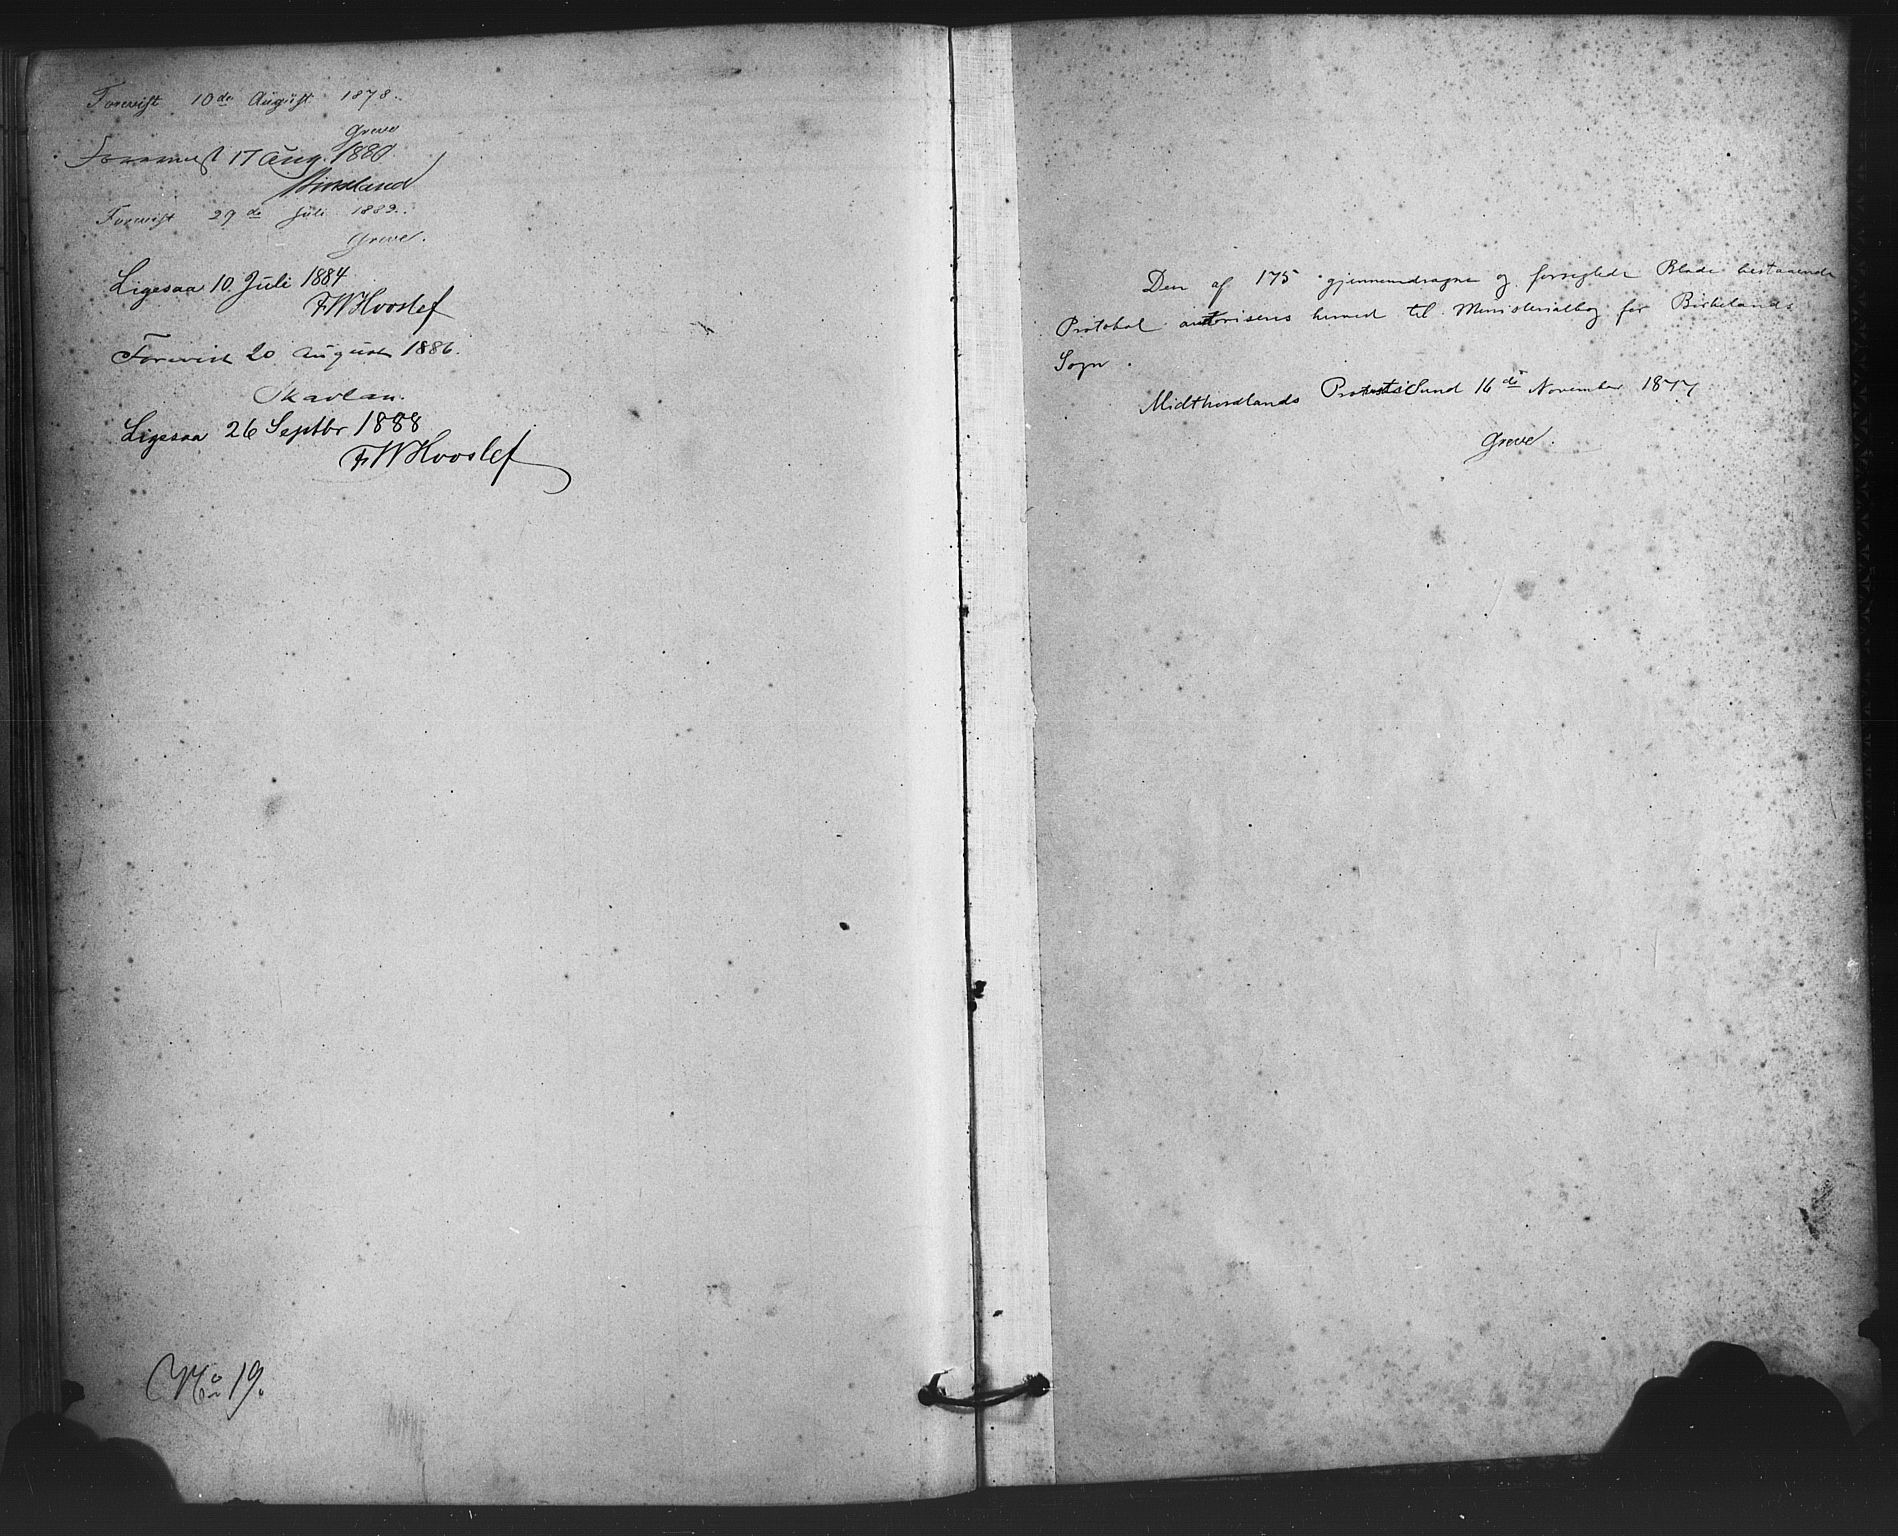 Forevist 10de August 1878.
Greve
Forevist 17 Aug. 1880.
Forevist 29de Juli 1882.
Greve.
Ligesaa 10 Juli 1884
FWHvoslef
Forevist 20 August 1886.
Skavlan.
Ligesaa 26 Septbr 1888
FWHvoslef
No 19.
Den af 175 gjennemdragne og forseglede Blade bestaaende
Protokol autoriseres herved til Ministerialbog for Birkelands
Sogn.
Midthordlands Provsti Sund 16de November 1877
Greve.